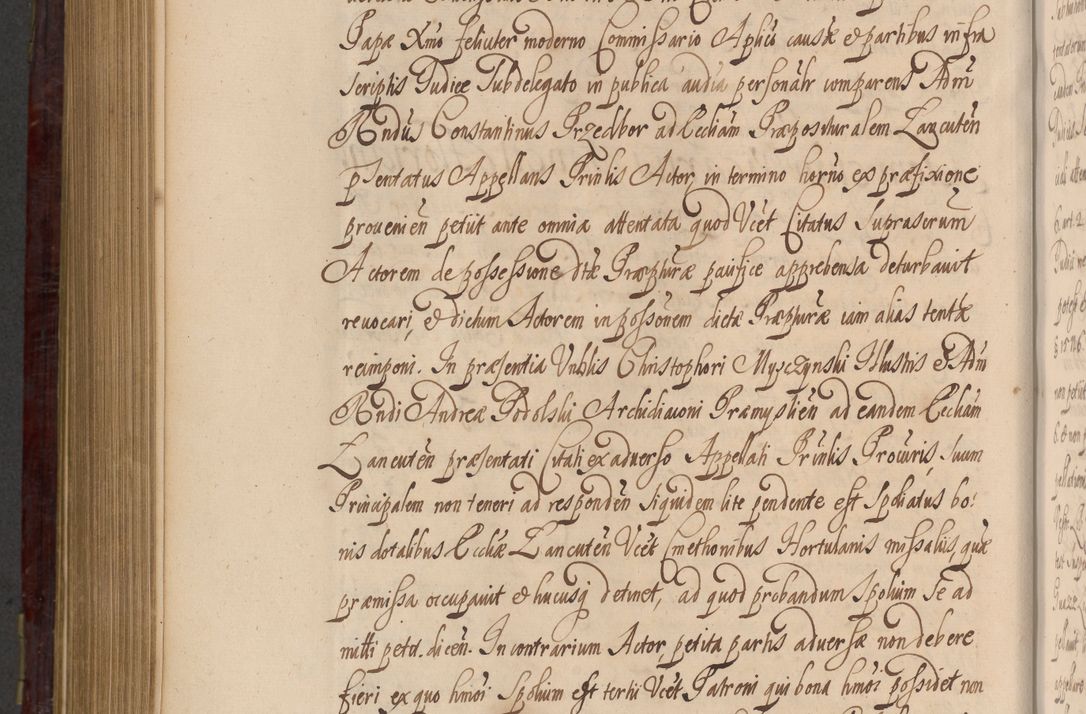 Papæ Xmo feliciter moderno Commissario Aplico causæ et partibus infra
scriptis Iudice Subdelegato in publica audia personalr comparens Adm
Rndus Constantinus Przedbor ad Eccliam Præposituralem Lancuten
psentatus Appellans Prinlis Actor, in termino horno ex præfixione
prouenien petiit ante omnia attentata quod Vcet Citatus suprascrum
Actorem de possessione dtæ Præpturæ pacifice apprehensa deturbavit
revocari, et dictum Actorem in possonem dictæ Præpturæ iam alias tentæ
reimponi. In præsentia Vnblis Christophori Myszczynski Illustris et Adm
Rndi Andreæ Podolski Archidiaconi Præmyslien ad eandem Eccliam
Lancuten præsentati Citati ex adverso Appellati Prinlis Procuris, suum
Principalem non teneri ad responden siquidem lite pendente est spoliatus bo:
nis dotalibus Eccliæ Lancuten Vcet Cmethonibus Hortulanis missaliis, quæ
præmissa occupauit et hucusq detinet, ad quod probandum spolium se ad
mitti petit. dicen. In contrarium Actor, petita partis adversæ non debere
fieri ex quo hmoi spolium est tertii Vcet Patroni qui bona hmoi possidet non